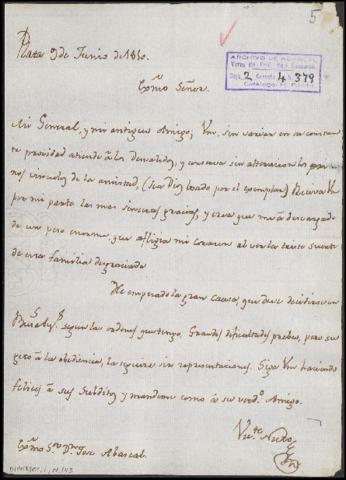 5
Plata 9 de Junio de 1810.
ARCHIVO DE ABASCAL
2 4 379
Exmo Señor.
Mi General, y mi antiguo Amigo; Vm. sin variar en su constan
te providad atiende à los desvalidos, y conserva sin alteracion los prim
ros vinculos de la amistad, (sea Dios loado por el exemplar) Reciva Vm
por mi parte las mas sinceras gracias, y crea que me à descargado
de un peso enorme, que afligia mi corazon al ver la triste suerte
de esta familia desgraciada
He empezado la gran causa, que deve decidirse en
Bueos Ays. segun las ordenes que tengo. Grandes dificultades preveo, pero su
geto à la obediencia, la seguire sin representaciones. Siga Vm haciendo
felices à sus subditos y mandeme como à su verdo. Amigo.
Victe. Nieto
Exmo Sor. Dn. Jose Abascal.